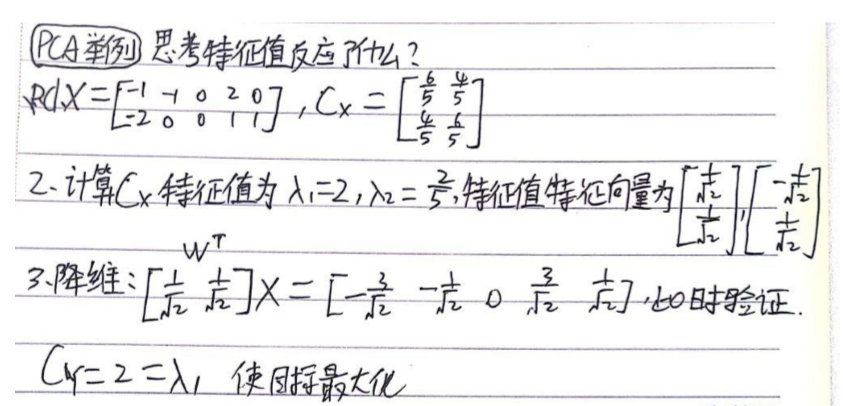 PCA举例 思考特征值反应了什么?
X = [-1 -1 0 2 0; -2 0 0 1 1], Cx = [6/5 4/5; 4/5 6/5]
2、计算Cx特征值为 λ1=2, λ2=2/5, 特征值特征向量为 [1/√2; 1/√2], [-1/√2; 1/√2]
W^T
3、降维: [1/√2 1/√2]X = [-3/√2 -1/√2 0 3/√2 1/√2], 时验证.
CY=2=λ1 使目标最大化